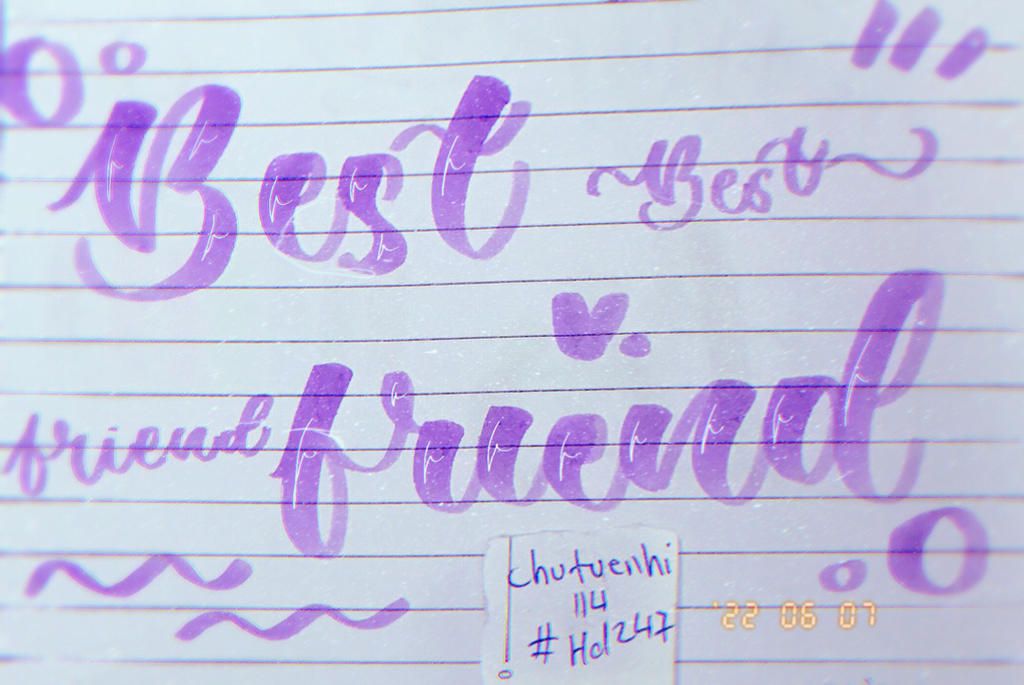 Best
Best
friend
friend
chutuenhi
114
#Hd247
'22 06 07